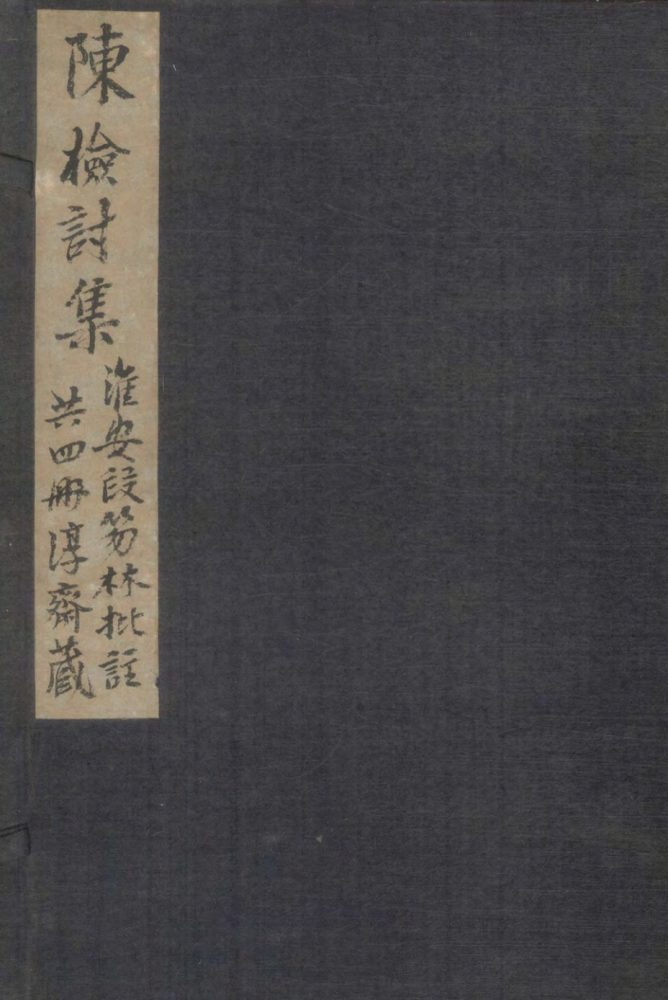 陳檢討集
淮安段笏林批註
共四冊淳齋藏